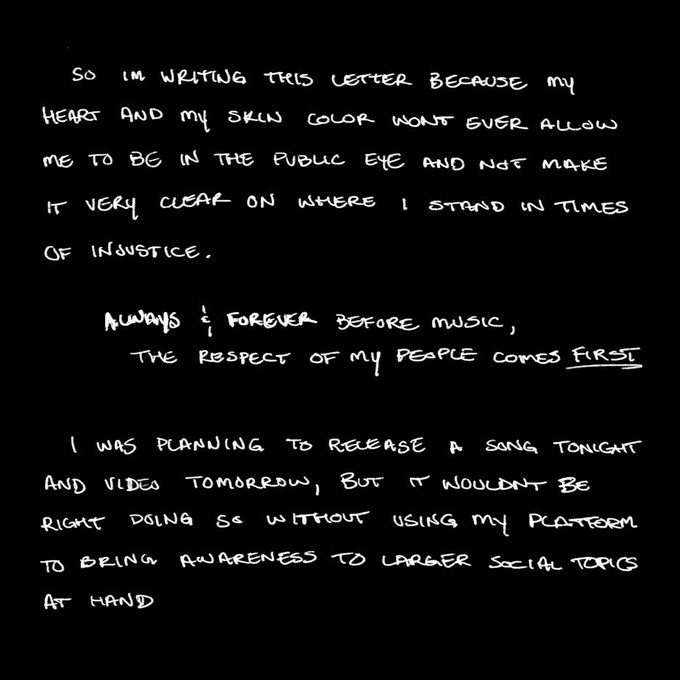 SO IM WRITING THIS LETTER BECAUSE MY
HEART AND MY SKIN COLOR WONT EVER ALLOW
ME TO BE IN THE PUBLIC EYE AND NOT MAKE
IT VERY CLEAR ON WHERE I STAND IN TIMES
OF INJUSTICE.
ALWAYS & FOREVER BEFORE MUSIC,
THE RESPECT OF MY PEOPLE COMES FIRST
I WAS PLANNING TO RELEASE A SONG TONIGHT
AND VIDEO TOMORROW, BUT IT WOULDNT BE
RIGHT DOING SO WITHOUT USING MY PLATFORM
TO BRING AWARENESS TO LARGER SOCIAL TOPICS
AT HAND